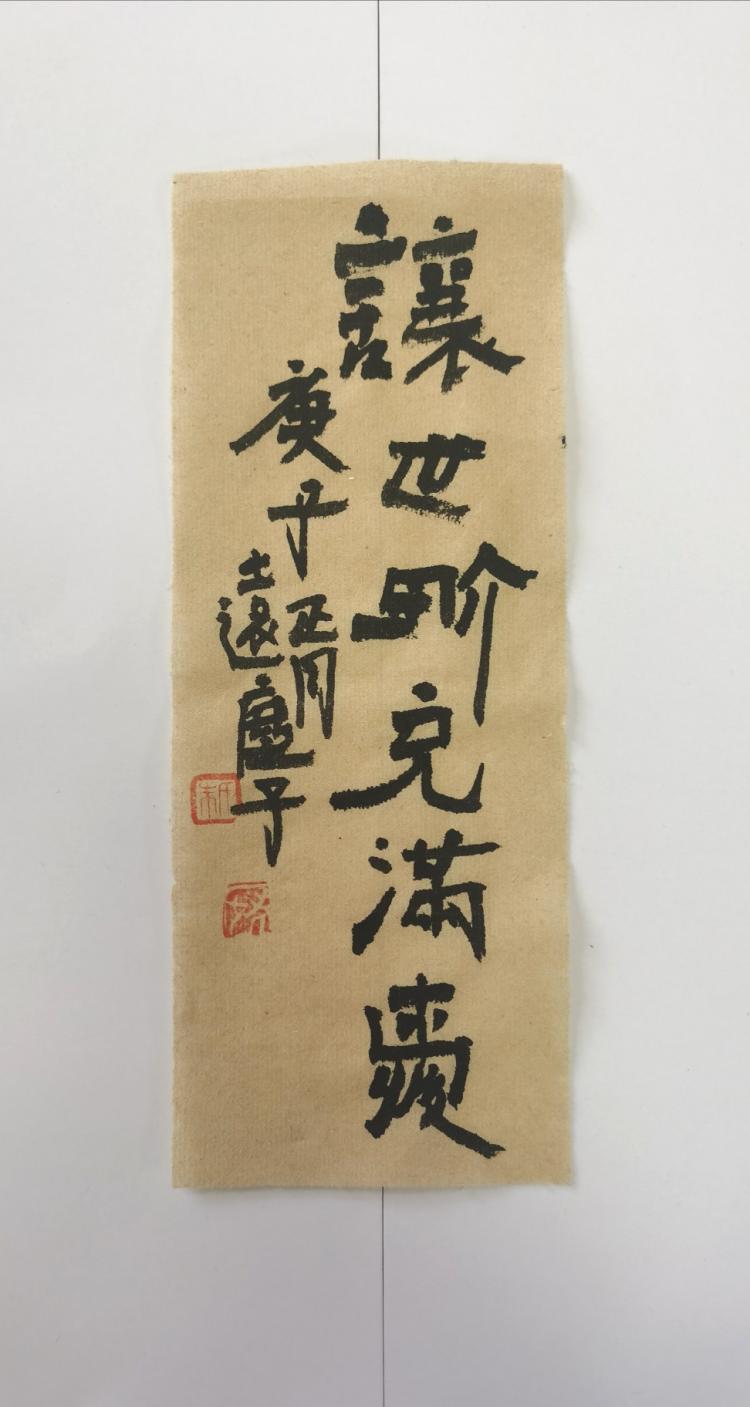 讓世界充滿愛
庚子正月
遠塵子